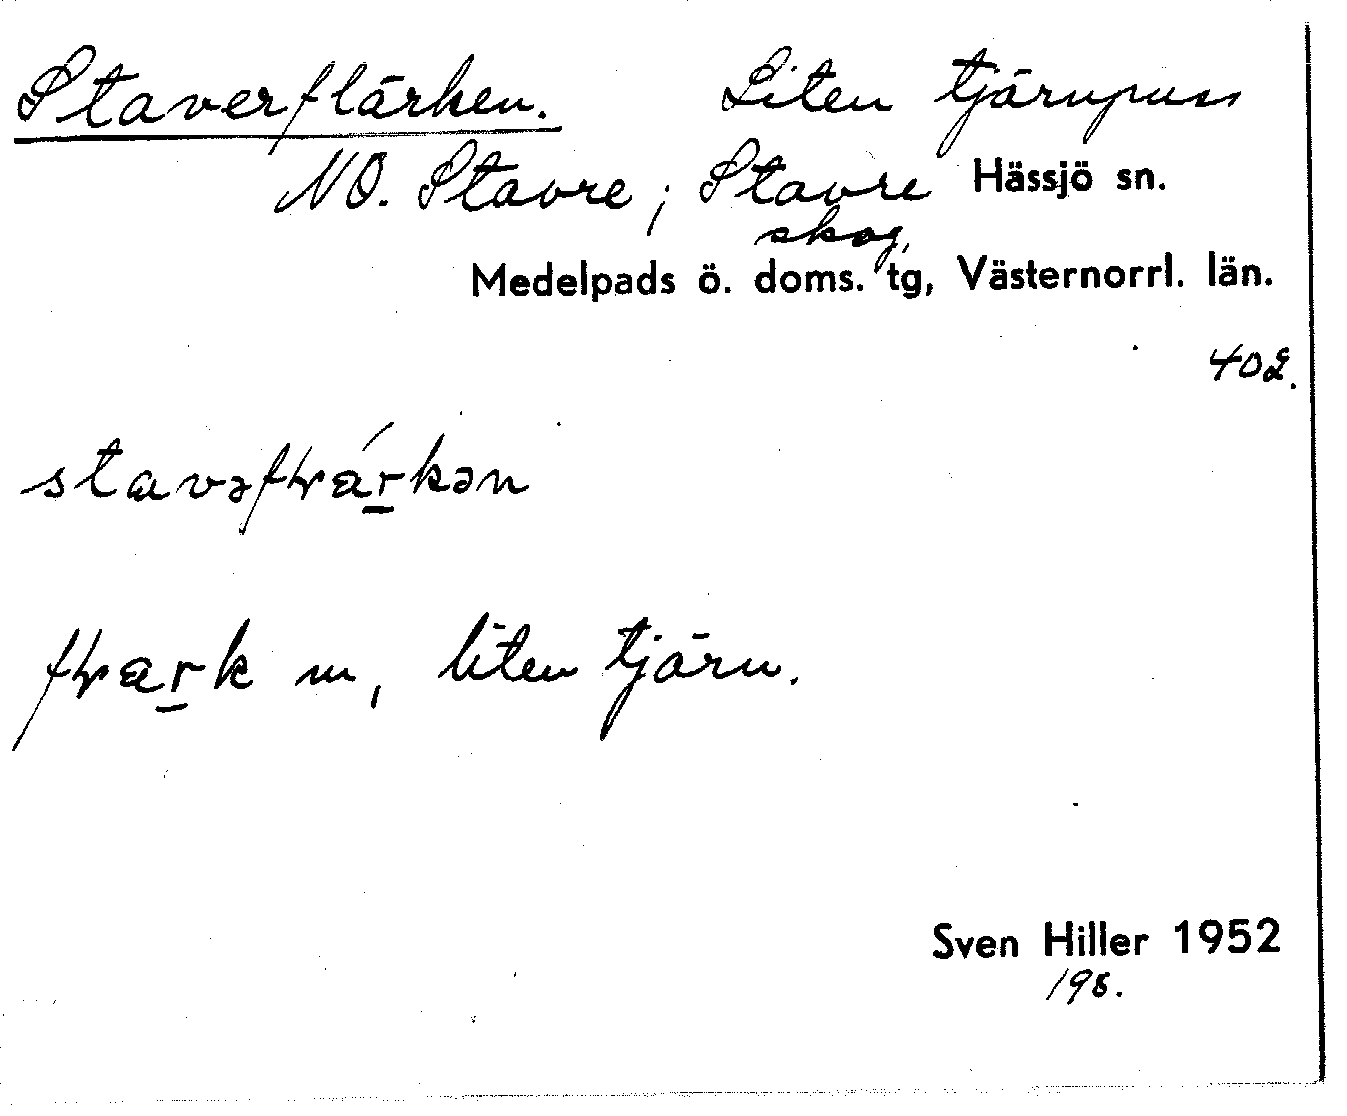 Staverflärken. Liten tjärnpuss
NO. Stavre; Stavre Hässjö sn.
skog,
Medelpads ö. doms. tg, Västernorrl. län.
402.
liten tjärn.
Sven Hiller 1952
198.